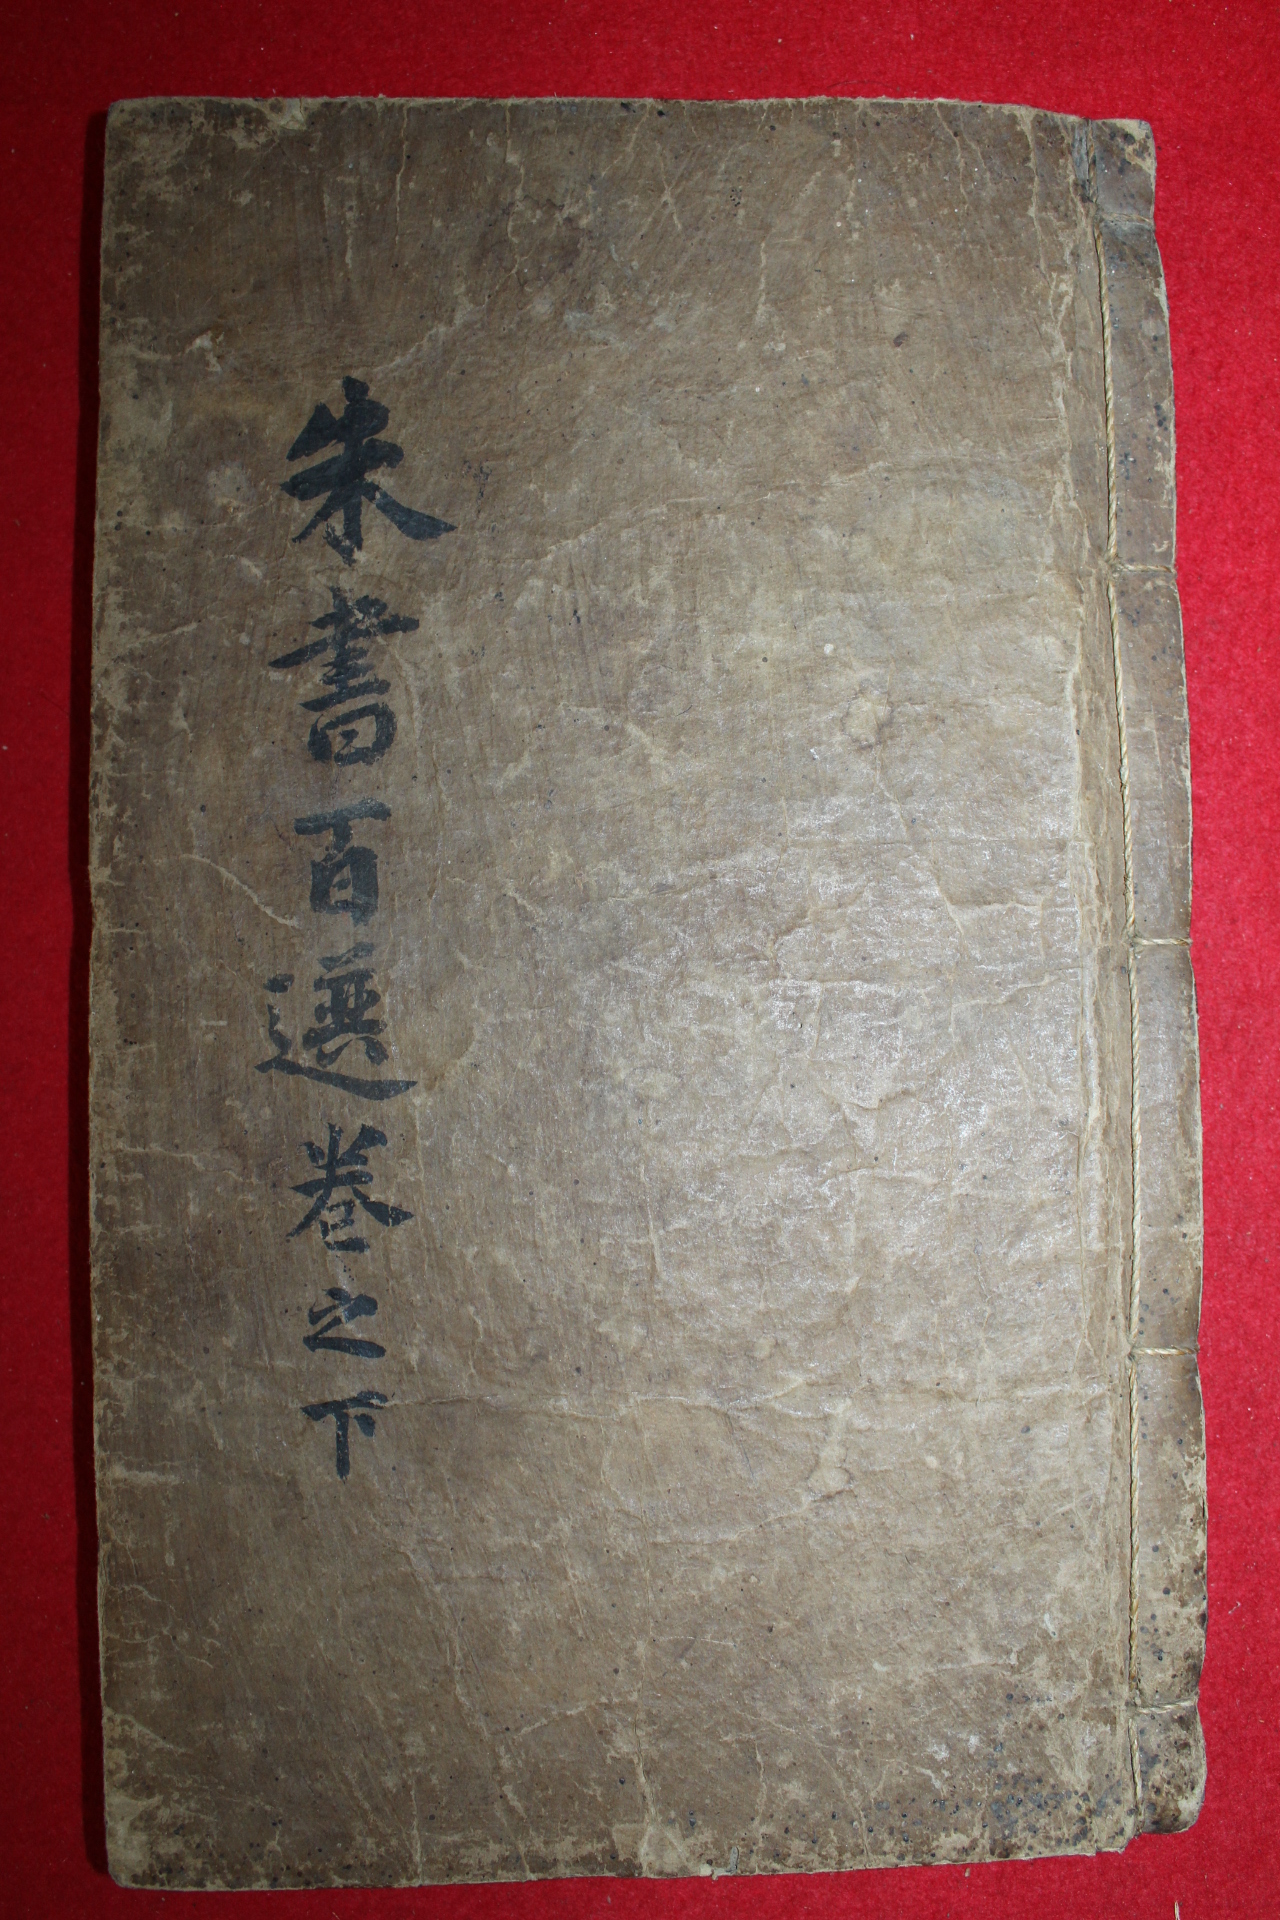 朱書百選卷之下